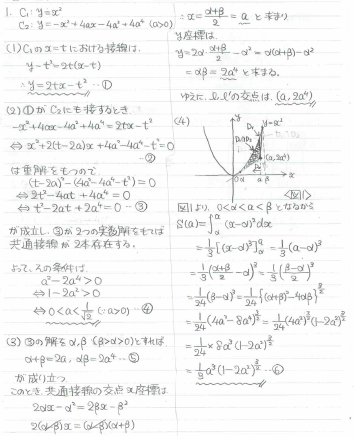 1. C₁: y=x²
C₂: y=-x²+4ax-4a²+4a⁴ (a>0)
(1) C₁のx=tにおける接線は、
y-t²=2t(x-t)
∴ y=2tx-t² …①
(2) ①がC₂にも接するとき
-x²+4ax-4a²+4a⁴=2tx-t²
⇔ x²+2(t-2a)x+4a²-4a⁴-t²=0
…②
は重解をもつので、
(t-2a)²-(4a²-4a⁴-t²)=0
⇔ 2t²-4at+4a⁴=0
⇔ t²-2at+2a⁴=0 …③
が成り立し、③が2つの実数解をもてば
共通接線が2本存在する。
よって、その条件は、
a²-2a⁴>0
⇔ 1-2a²>0
⇔ 0<a<1/√2 (∵a>0) …④
(3) ③の解をα,β (β>α>0)とすれば
α+β=2a, αβ=2a⁴ …⑤
が成り立つ。
このとき、共通接線の交点x座標は
2αx-α²=2βx-β²
2(α-β)x=(α-β)(α+β)
∴ x=(α+β)/2=a と求まり
y座標は、
y=2α・(α+β)/2-α²=α(α+β)-α²
=αβ=2a⁴と求まる。
ゆえに、l,l'の交点は、(a,2a⁴)
(4)
y
y=x²
D₁
(a,2a⁴)
0
α
a
β
x
<図1>
図1より、0<α<a<βとなるから
S(a)=∫[α→a](x-α)²dx
=1/3[(x-α)³][α→a]=1/3(a-α)³
=1/3((α+β)/2-α)³=1/3((β-α)/2)³
=1/24(β-α)³=1/24{(α+β)²-4αβ}^(3/2)
=1/24(4a²-8a⁴)^(3/2)=1/24(4a²)^(3/2)(1-2a²)^(3/2)
=1/24×8a³(1-2a²)^(3/2)
=1/3a³(1-2a²)^(3/2) …⑥